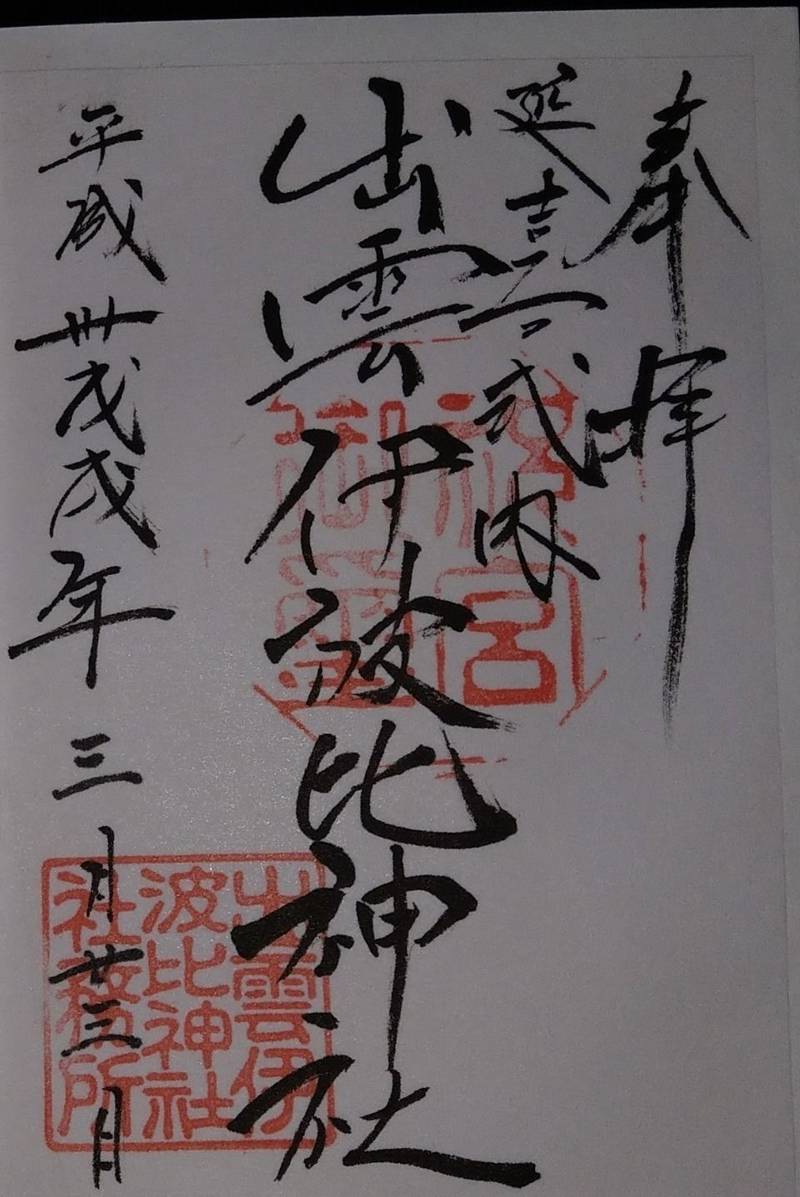 奉拝
延喜式内
出雲伊波比神社
平成卅戊戌年三月廿三日
出雲伊
波比神社
社務所